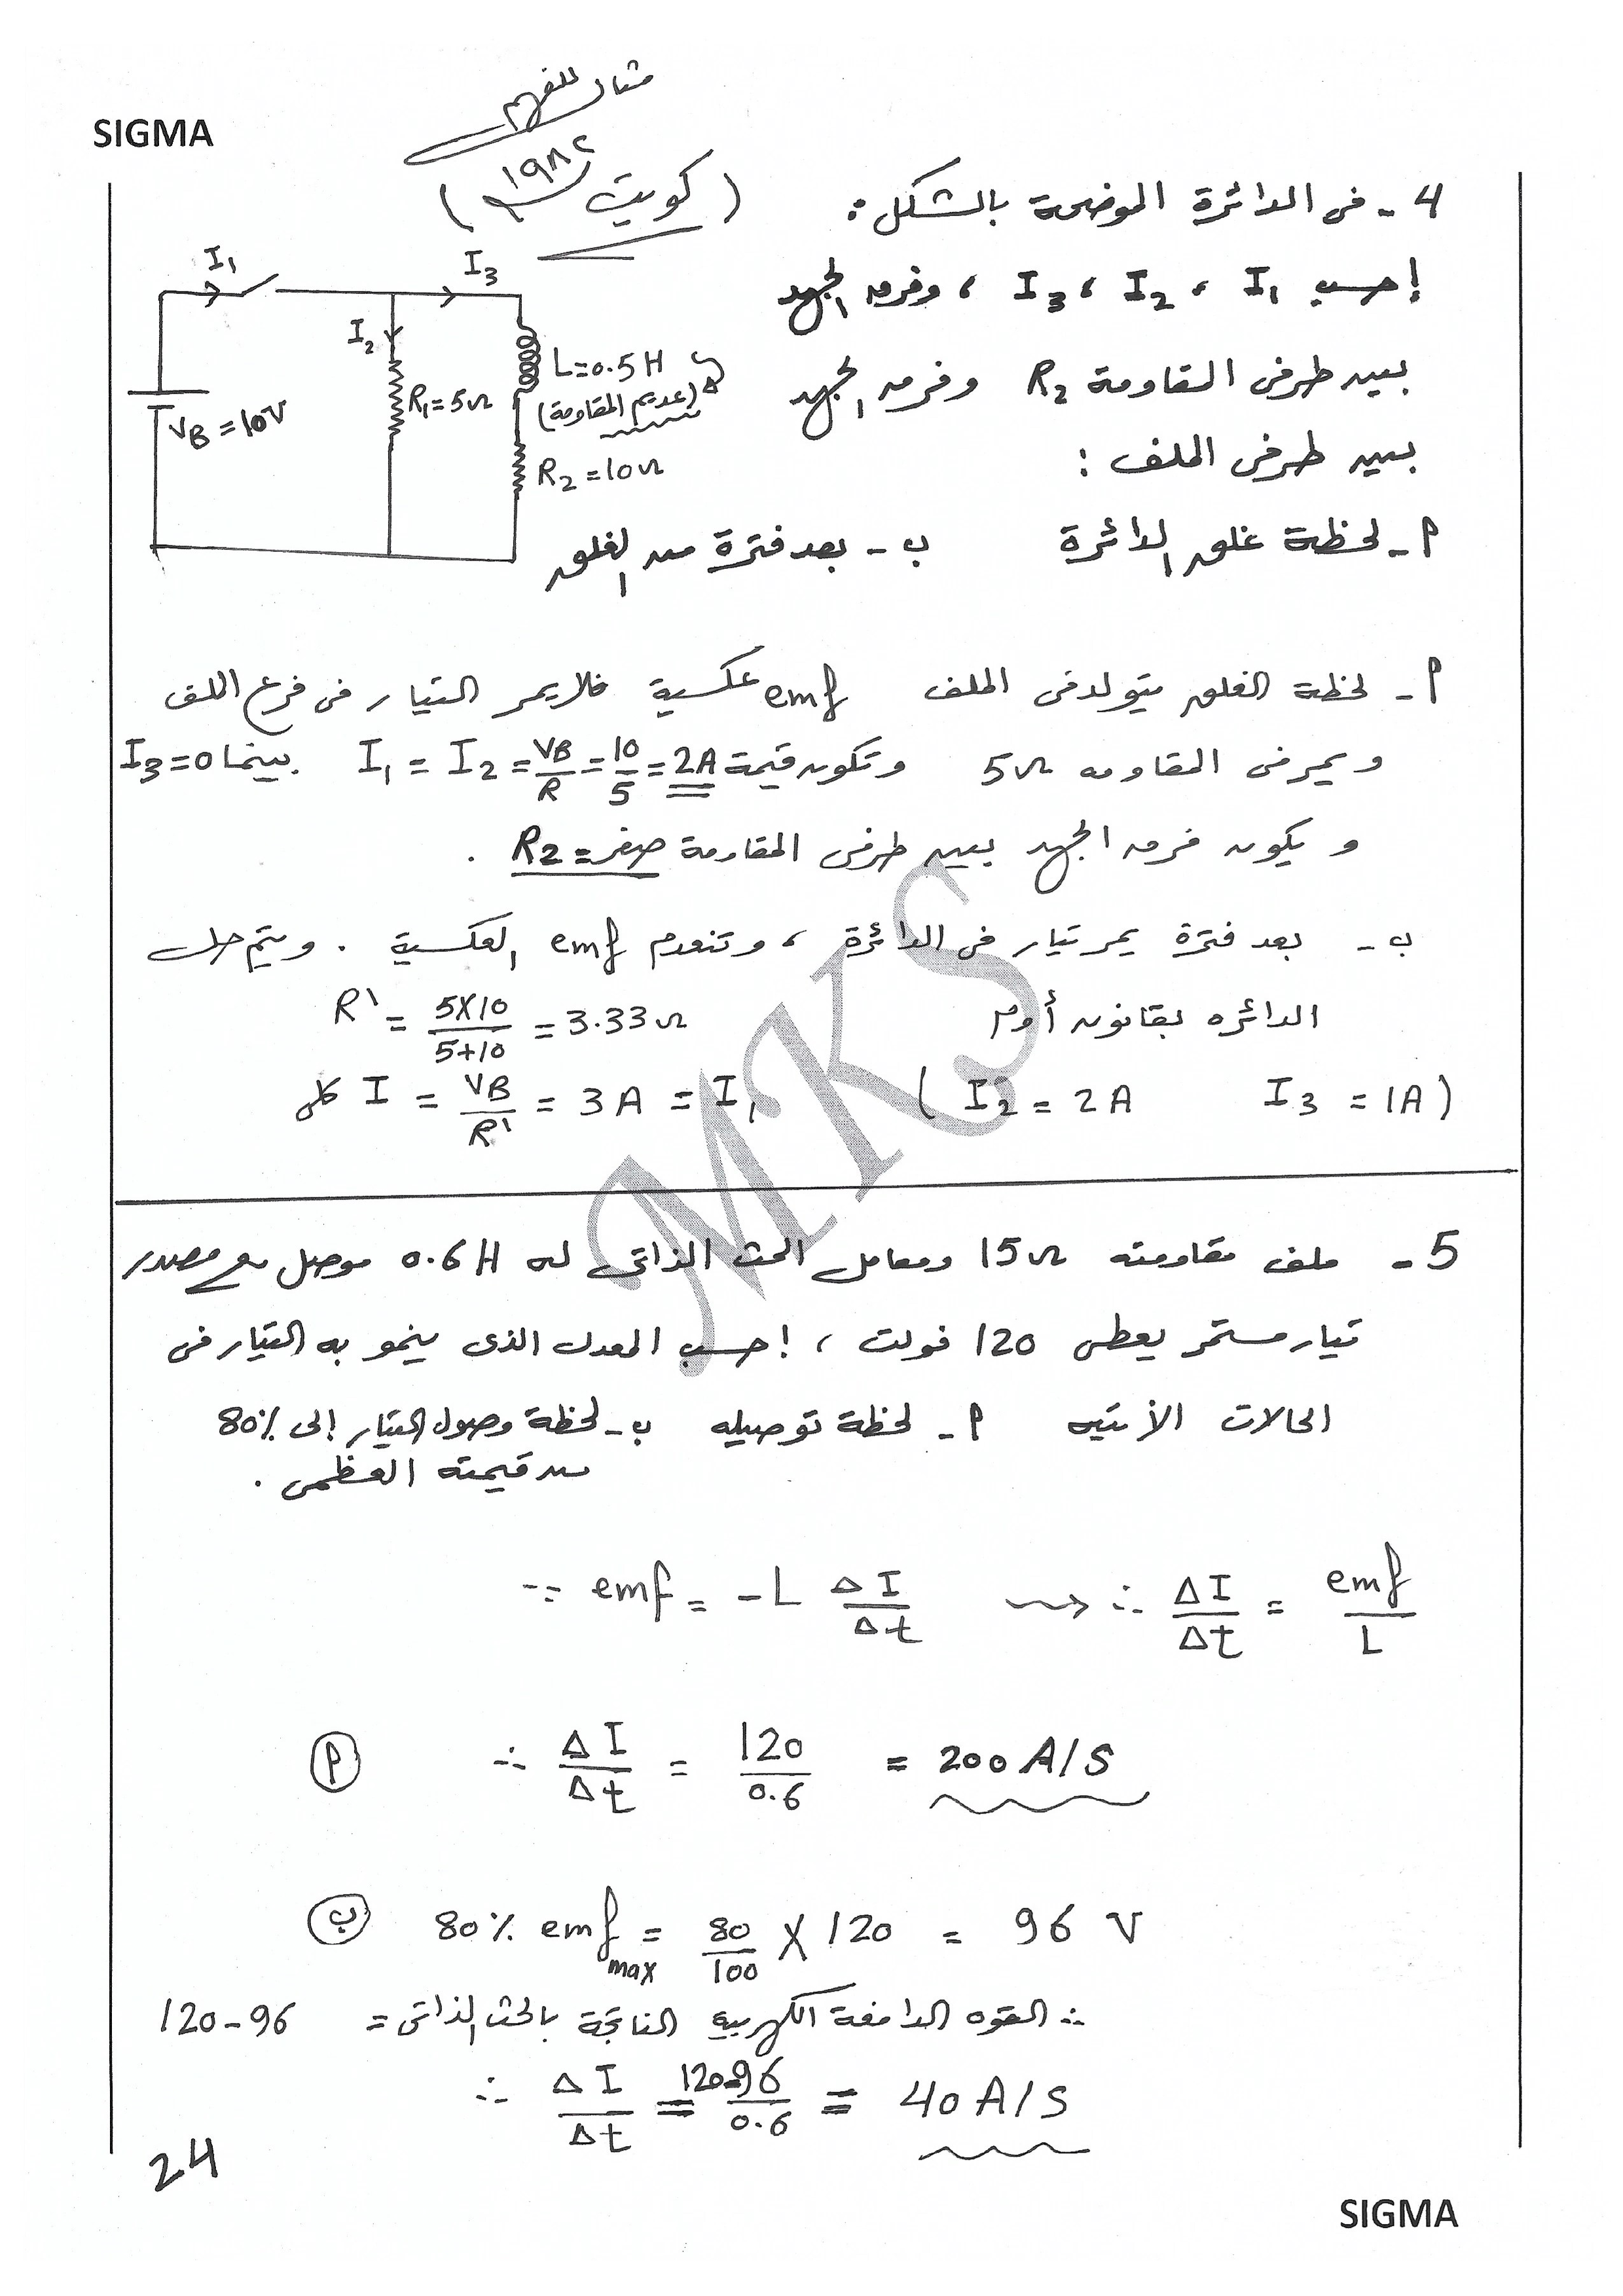 SIGMA
مثال للفهم
(كويت ١٩٨٢)
4 - فى الدائرة الموضحة بالشكل :
إحسب I1 ، I2 ، I3 ، وفرق الجهد
بين طرفى المقاومة R2 وفرق الجهد
بين طرفى الملف :
أ - لحظة غلق الدائرة ب - بعد فترة من الغلق
I1
I3
I2
L=0.5H
(عديم المقاومة)
R1=5Ω
VB=10V
R2=10Ω
أ - لحظة الغلق يتولد فى الملف emf عكسية فلا يمر التيار فى فرع الملف
ويمر فى المقاومه 5Ω وتكون قيمة I1 = I2 = VB/R = 10/5 = 2A بينما I3=0
ويكون فرق الجهد بين طرفى المقاومة R2 = صفر .
ب - بعد فترة يمر تيار فى الدائرة ، وتنعدم emf العكسية . ويتم حل
الدائره بقانون أوم R' = 5X10/5+10 = 3.33Ω
كلى I = VB/R' = 3A = I1 ( I2 = 2A I3 = 1A )
5 - ملف مقاومته 15Ω ومعامل الحث الذاتى له 0.6H موصل مع مصدر
تيار مستمر يعطى 120 فولت ، إحسب المعدل الذى ينمو به التيار فى
الحالات الأتيه أ - لحظة توصيله ب - لحظة وصول التيار إلى 80%
من قيمته العظمى .
∵ emf = -L ΔI/Δt ⇝ ∴ ΔI/Δt = emf/L
أ ∴ ΔI/Δt = 120/0.6 = 200 A/S
ب 80% emf max = 80/100 X 120 = 96 V
∴ القوه الدافعة الكهربيه الناتجة بالحث الذاتى = 120-96
∴ ΔI/Δt = 120-96/0.6 = 40 A/S
24
SIGMA
MKS